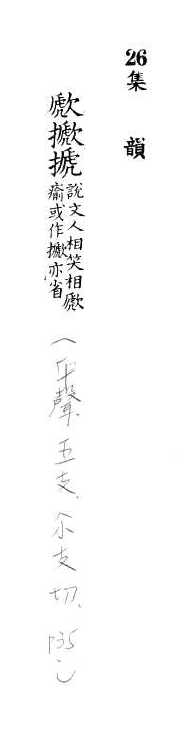 26
集韻
歋擨搋說文人相笑相歋
瘉或作擨亦省
(平聲、五支、余支切、p35)